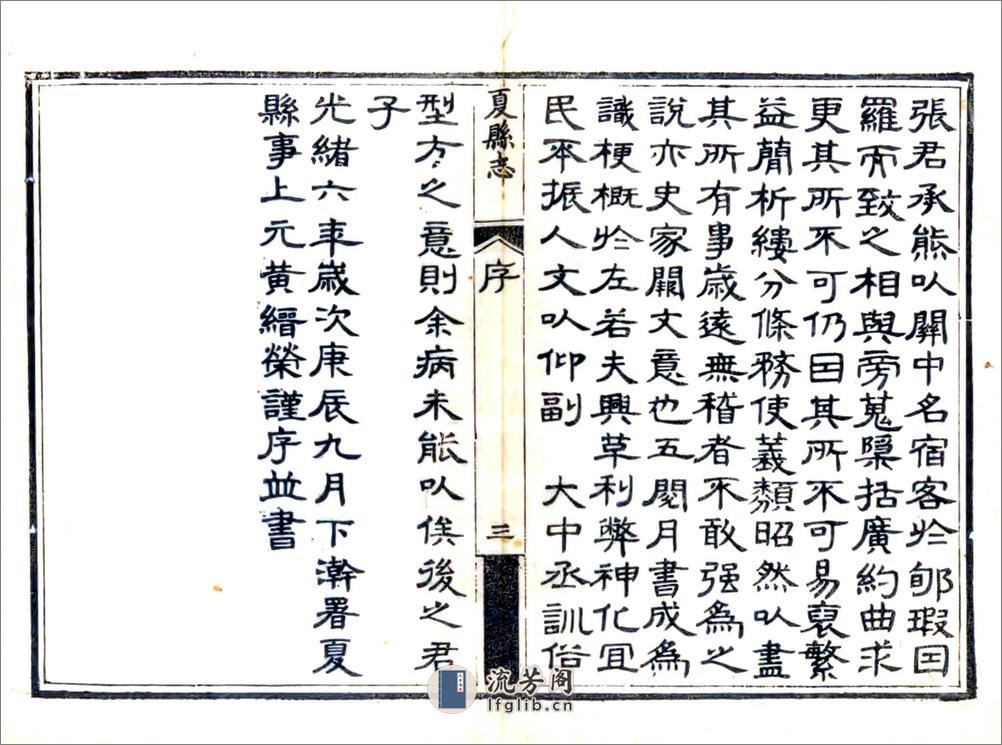 張君承熊以關中名宿客於郇瑕因
羅而致之相與旁蒐檃括廣約曲求
更其所不可仍因其所不可易裒繁
益簡析縷分條務使義類昭然以盡
其所有事歲遠無稽者不敢强為之
說亦史家闕文意也五閱月書成為
識梗概於左若夫興革利弊神化宜
民丕振人文以仰副　大中丞訓俗
夏縣志
序
三
型方之意則余病未能以俟後之君
子
光緒六年歲次庚辰九月下澣署夏
縣事上元黃縉榮謹序並書
流芳阁
lfglib.cn